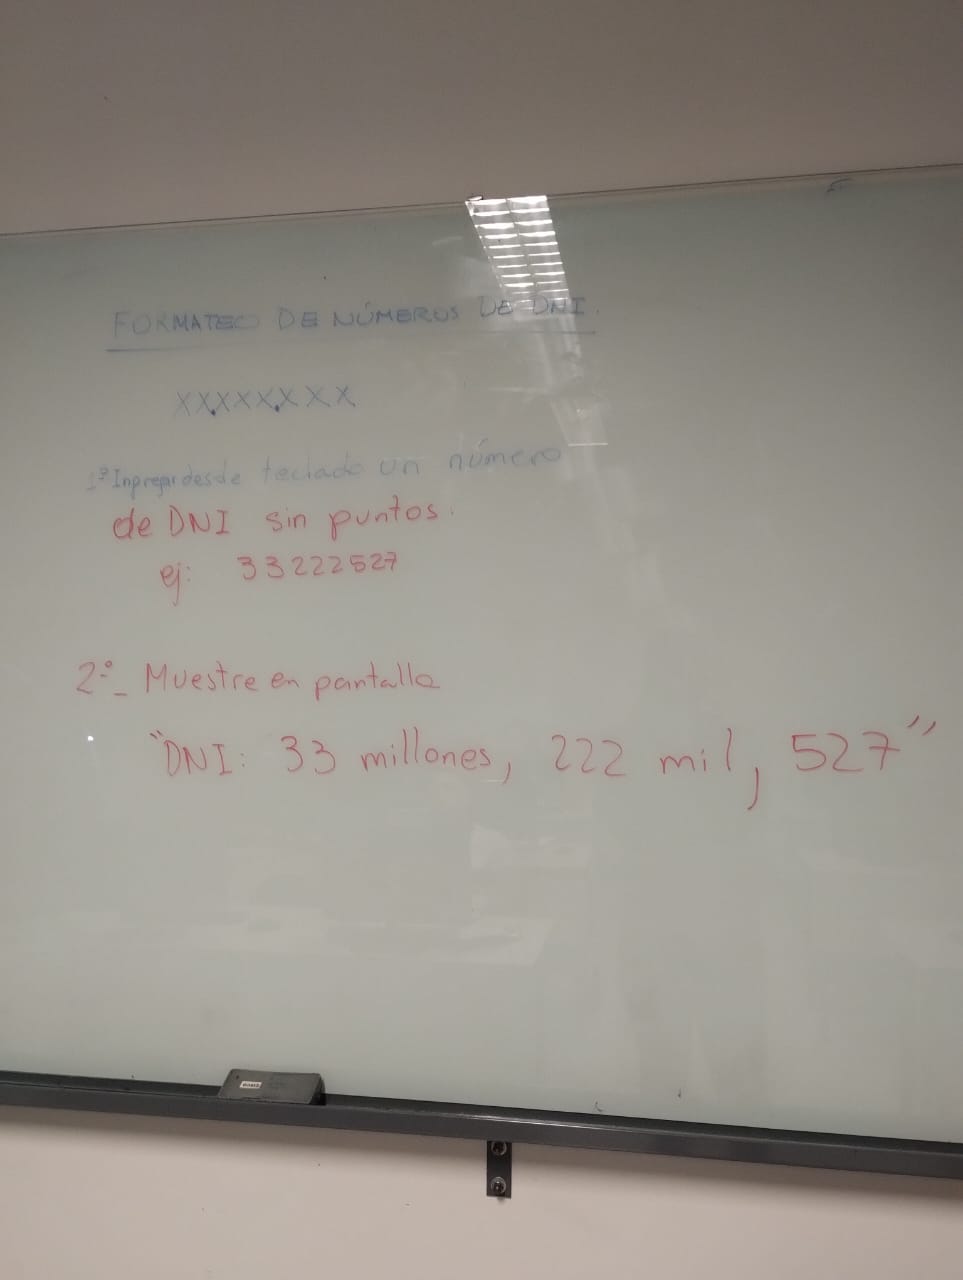 FORMATEO DE NÚMEROS DE DNI.
XX.XXX.XXX
1º Ingresar desde teclado un número
de DNI sin puntos.
ej: 33222527
2º_ Muestre en pantalla
"DNI: 33 millones, 222 mil, 527"